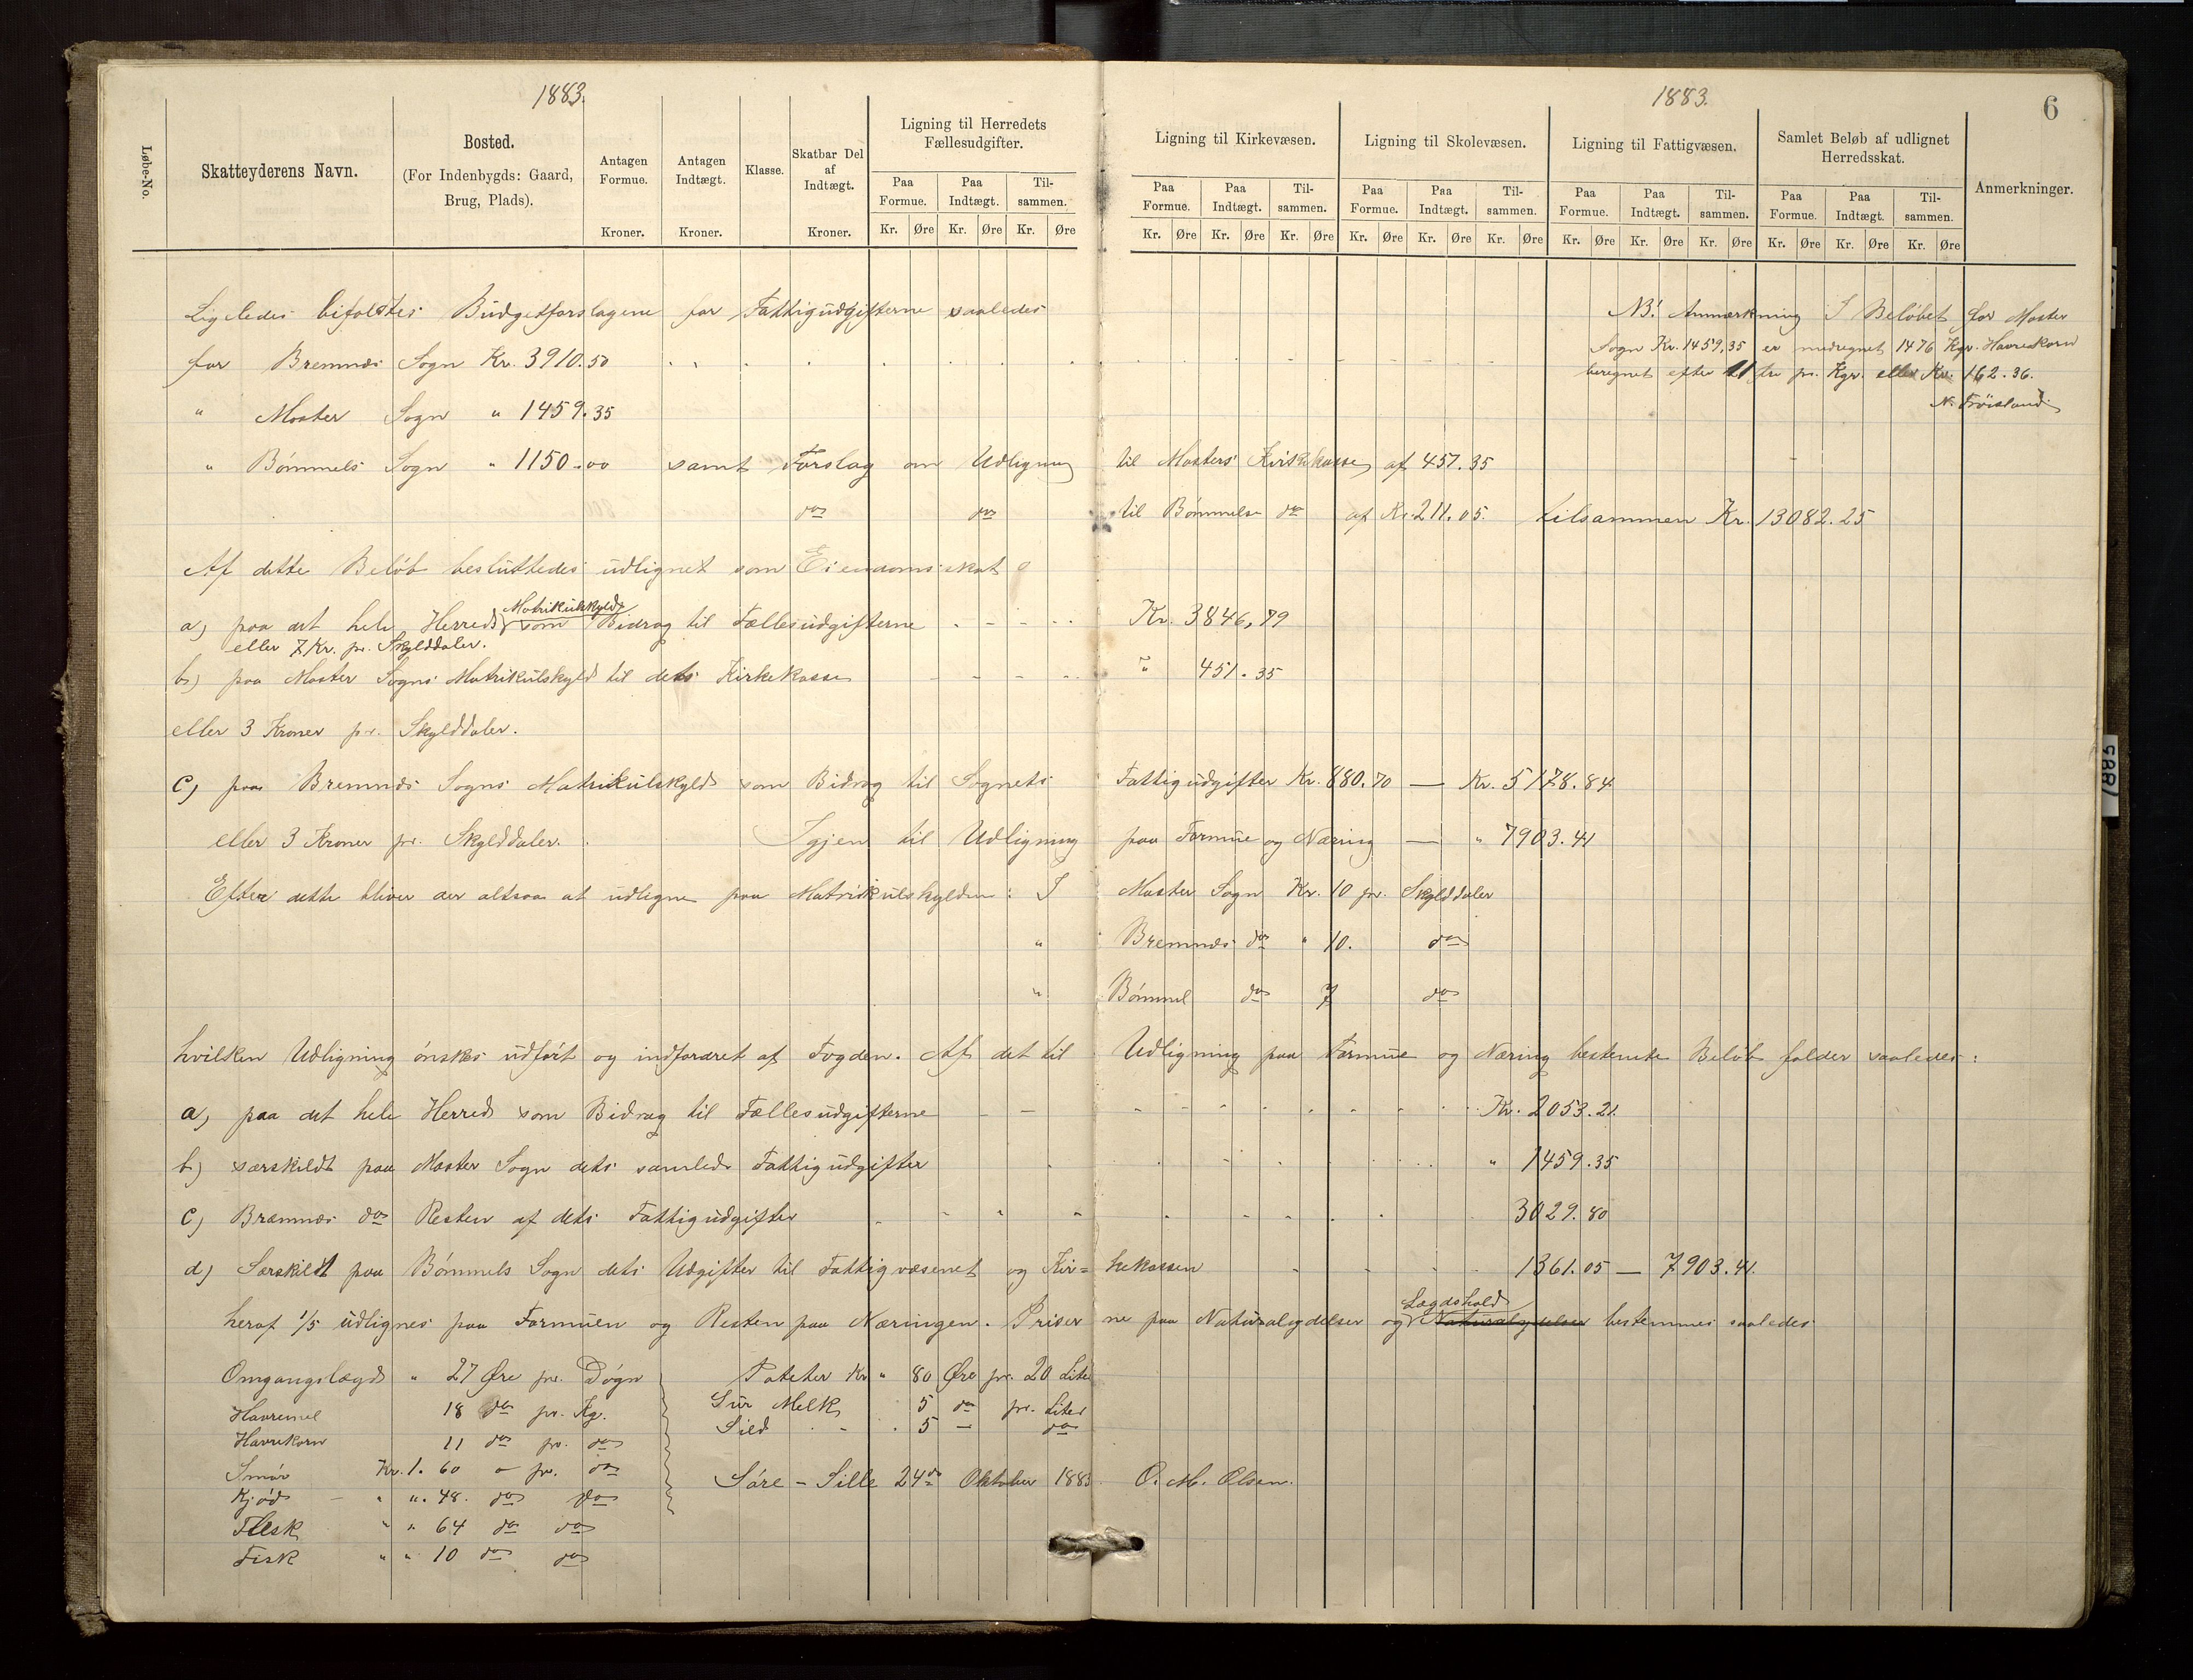 1883.
1883.
6
Løbe-No.
Skatteyderens Navn.
Bosted.
(For Indenbygds: Gaard,
Brug, Plads).
Antagen
Formue.
Kroner.
Antagen
Indtægt.
Kroner.
Klasse.
Skatbar Del
af
Indtægt.
Kroner.
Ligning til Herredets
Fællesudgifter.
Paa Formue. Paa Indtægt. Til-sammen.
Kr. Øre Kr. Øre Kr. Øre
Ligning til Kirkevæsen.
Paa Formue. Paa Indtægt. Til-sammen.
Kr. Øre Kr. Øre Kr. Øre
Ligning til Skolevæsen.
Paa Formue. Paa Indtægt. Til-sammen.
Kr. Øre Kr. Øre Kr. Øre
Ligning til Fattigvæsen.
Paa Formue. Paa Indtægt. Til-sammen.
Kr. Øre Kr. Øre Kr. Øre
Samlet Beløb af udlignet
Herredsskat.
Paa Formue. Paa Indtægt. Til-sammen.
Kr. Øre Kr. Øre Kr. Øre
Anmerkninger.
Ligeledes bifoldtes Budgetforslagene for Fattigudgifterne saaledes
for Bremnæs Sogn Kr. 3910.50
" Moster Sogn " 1459.35
" Bömmels Sogn " 1150.00 samt Forslag om Udligning til Mosters Kirkekasse af 451.35
do do til Bömmels do af Kr. 211.05. tilsammen Kr. 13082.25
NB. Anmærkning I Beløbet for Moster
Sogn Kr. 1459,35 er medregnet 1476 Kgr. Havrekorn
beregnet efter 11 Øre pr. Kgr. eller Kr. 162.36.
Af dette Beløb besluttedes udlignet som Eiendomsskat
a) paa det hele Herreds Matrikulskyld som Bidrag til Fællesudgifterne Kr. 3846,79
eller 7 Kr. pr. Skylddaler.
b) paa Moster Sogns Matrikulskyld til dets Kirkekasse " 451.35
eller 3 Kroner pr. Skylddaler.
c) paa Bremnæs Sogns Matrikulskyld som Bidrag til Sognets Fattigudgifter Kr. 880.70 — Kr. 5178.84
eller 3 Kroner pr. Skylddaler. Igjen til Udligning paa Formue og Næring — " 7903.41
Efter dette bliver der altsaa at udligne paa Matrikulskylden: I Moster Sogn Kr. 10 pr. Skylddaler
" Bremnæs do " 10. do
" Bömmel do 7 do
hvilken Udligning önskes udfört og indfordret af Fogden. Af det til Udligning paa Formue og Næring bestemte Beløb falder saaledes:
a) paa det hele Herred som Bidrag til Fællesudgifterne Kr. 2053.21.
b) særskildt paa Moster Sogn dets samlede Fattigudgifter " 1459.35
c) Bremnæs do Resten af dets Fattigudgifter 3029.80
d) Særskildt paa Bömmels Sogn dets Udgifter til Fattigvæsenet og Kir=kekassen 1361.05 — 7903.41.
heraf 1/5 udlignes paa Formuen og Resten paa Næringen. Priser ne paa Naturalydelser og Lægdshold Naturalydelser bestemmes saaledes
Omgangslægd " 27 Øre pr. Dögn
Havremel 18 do pr. Kg.
Havrekorn 11 do pr. do
Smör Kr. 1. 60 - pr. do
Kjöd " ". 48. do do
Flesk " " 64 do do
Fisk " " 10 do do
Poteter Kr " 80 Øre pr. 20 Liter
Sur Melk 5 do pr. Liter
Sild 5 — do
Söre - Sille 24de Oktober 1883. O. M. Olsen.